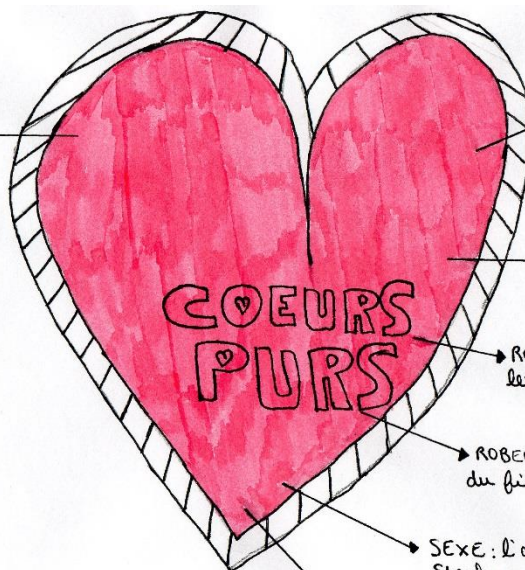 COEURS
PURS
ROBE
du fi
SEXE: l'a